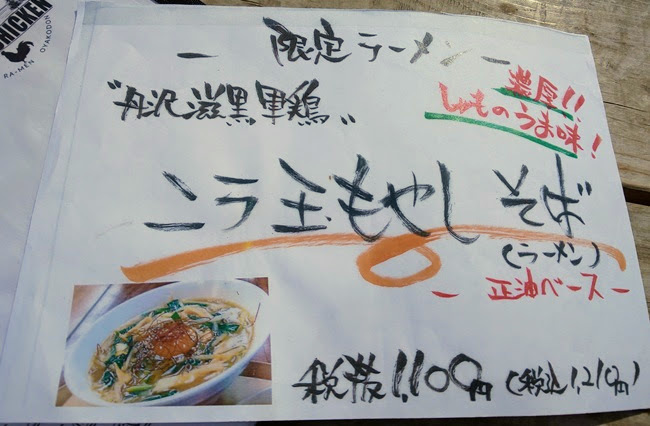 CHICKEN
RA-MEN OYAKODON
— 限定ラーメン —
"丹沢滋黒軍鶏"
濃厚!!
しゃものうま味!
ニラ玉もやしそば
(ラーメン)
— 正油ベース —
税抜1,100円 (税込1,210円)